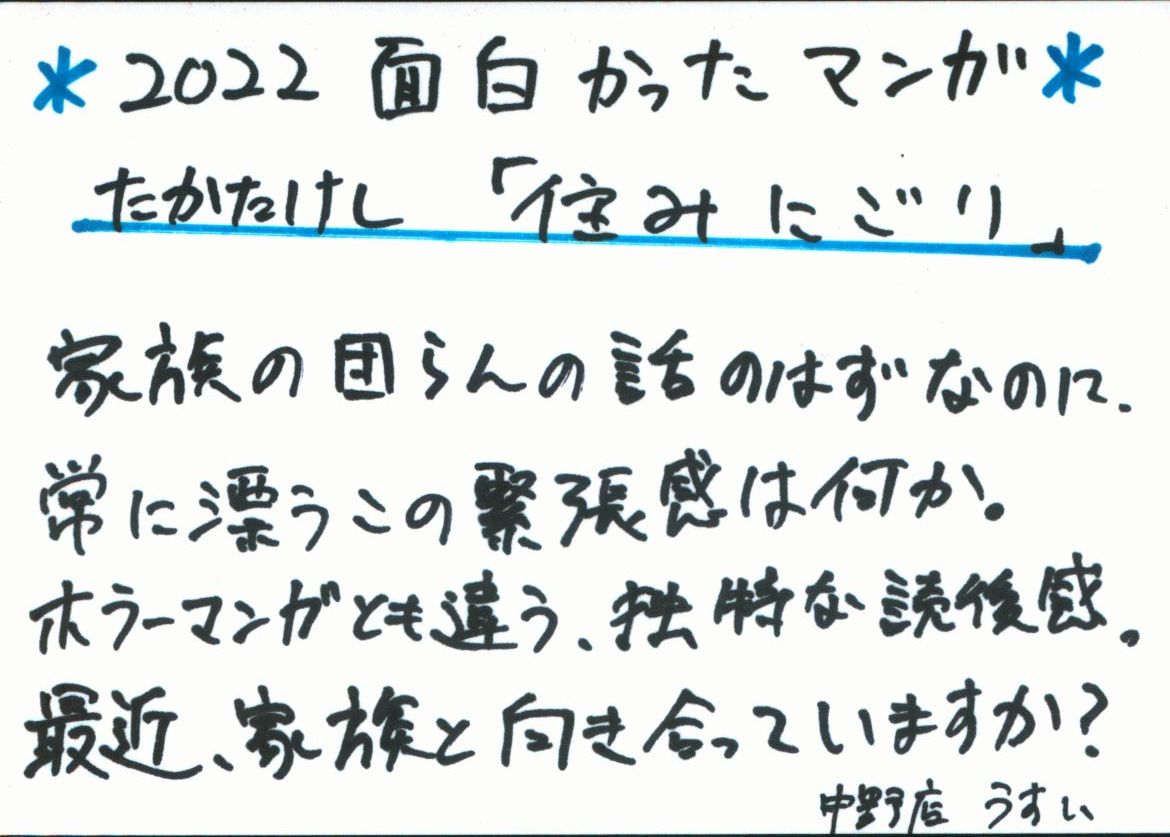 *2022 面白かったマンガ*
たかたけし 「住みにごり」
家族の団らんの話のはずなのに、
常に漂うこの緊張感は何か。
ホラーマンガとも違う、独特な読後感。
最近、家族と向き合っていますか?
中野店 うすい